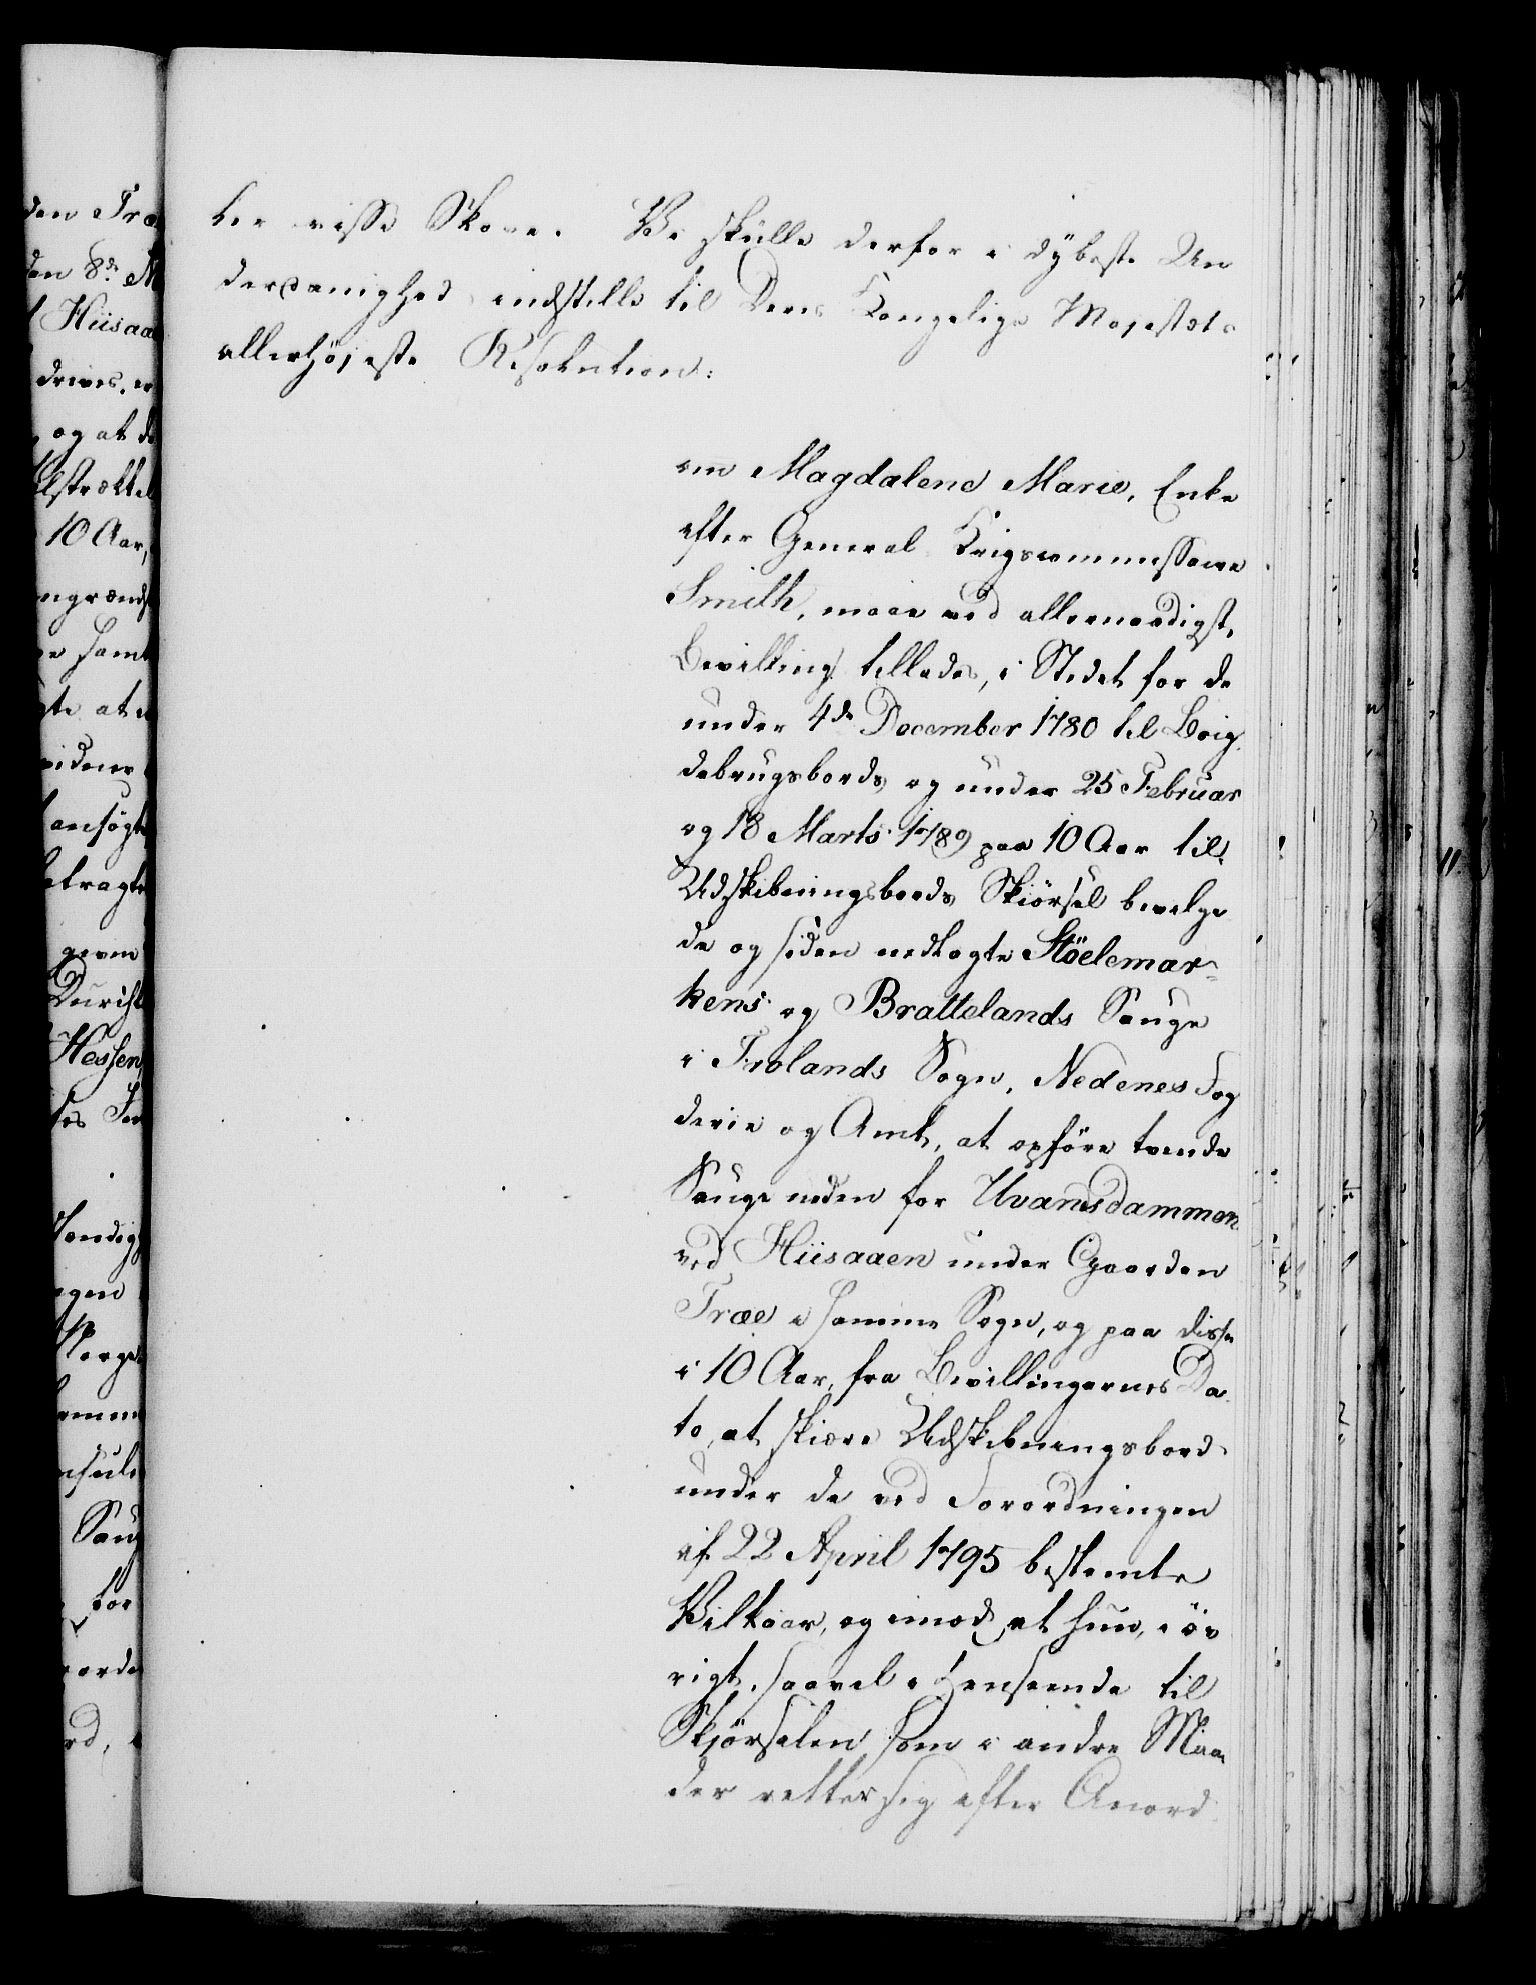 ler visse Skove. Vi skulle derfor i dybeste Un
derdanighed indstille til Deres Kongelige Majestæts
allerhöjeste Resolution:
om Magdalene Marie, Enke
efter General Krigscommissaire
Smith, maae ved allernaadigst
Bevilling tillades, i Stedet for de
under 4de December 1780 til Boig
debrugsbords og under 25 Februar
og 18 Marts 1789 paa 10 Aar til
Udskibningsbords Skiörsel bevilge
de og siden nedlagte Stöelemar-
kens og Brattelands Sauge
i Frolands Sogn, Nedenes Fog
derie og Amt, at opföre tvende
Sauge neden for Uvandsdammen
ved Hiisaaen under Gaarden
Træe i samme Sogn, og paa disse
i 10 Aar, fra Bevillingernes Da
to, at skiære Udskibningsbord
under de ved Forordningen
af 22 April 1795 bestemte
Vilkaar, og imod, at hun, i öv
rigt, saavel i Henseende til
Skjörselen som i andre Maa
der retter sig efter Anord